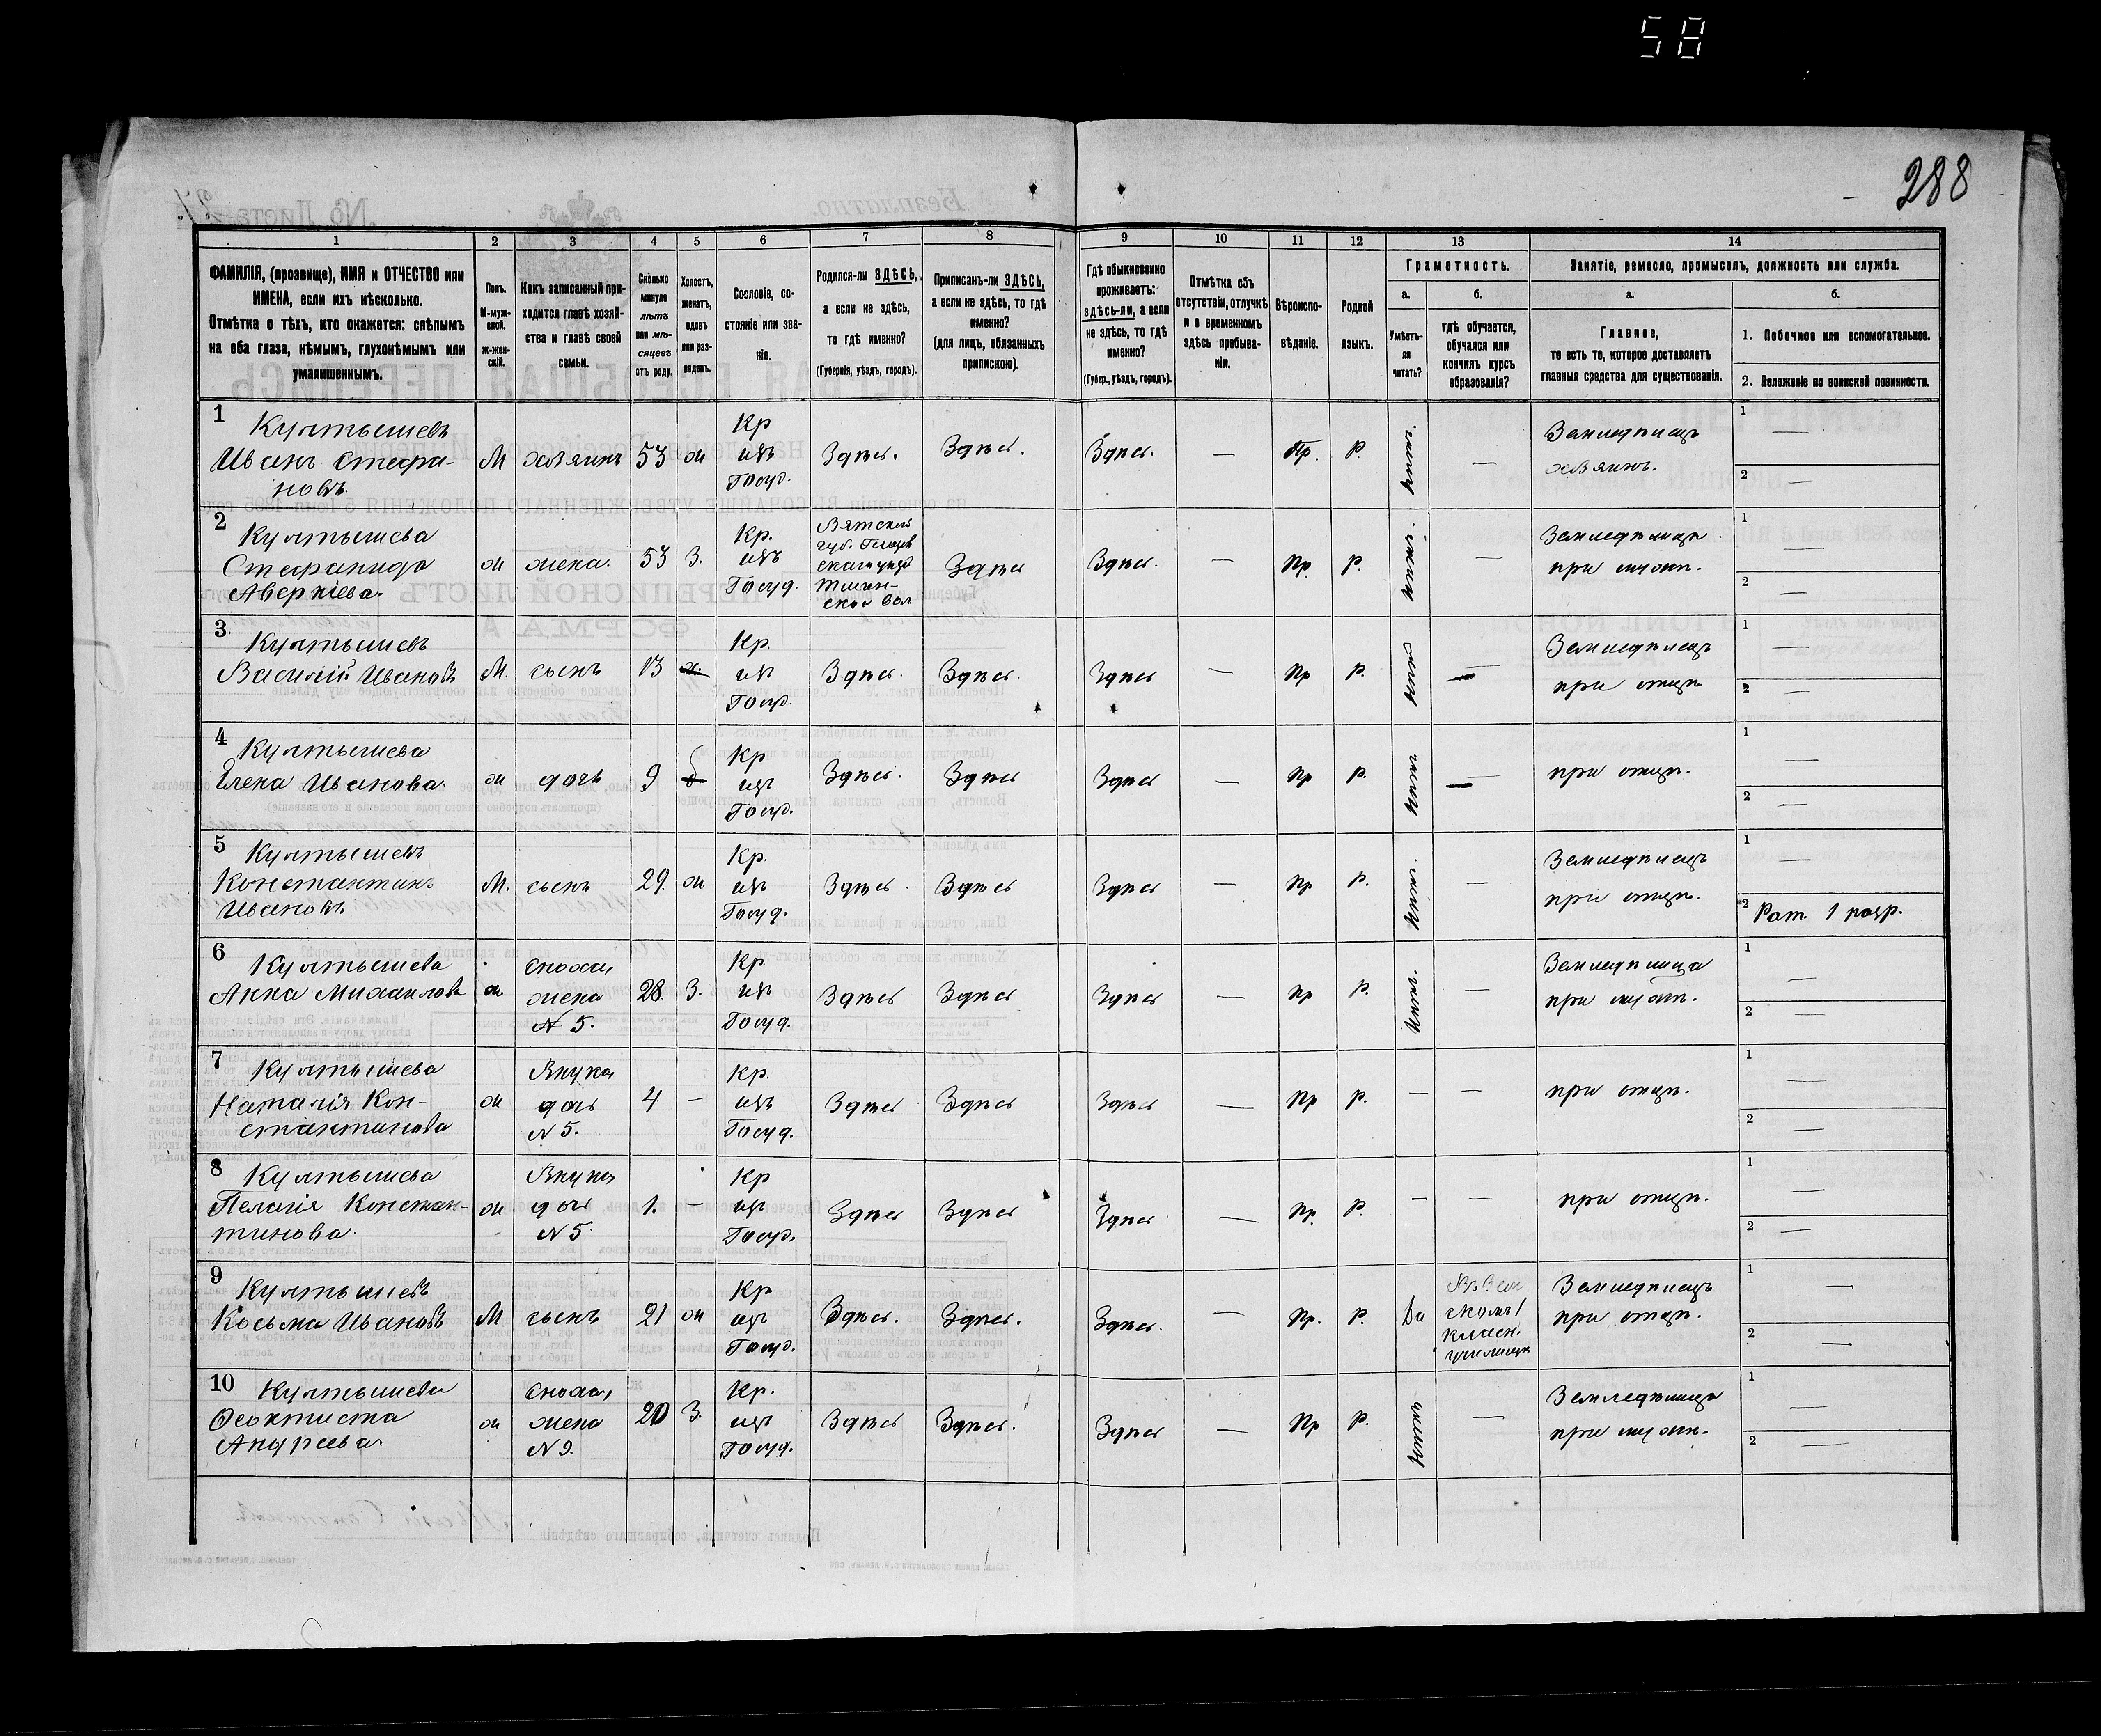 58
288
1
2
3
4
5
6
7
8
9
10
11
12
13
14
ФАМИЛІЯ, (прозвище), ИМЯ и ОТЧЕСТВО или
ИМЕНА, если ихъ нѣсколько.
Отмѣтка о тѣхъ, кто окажется: слѣпымъ
на оба глаза, нѣмымъ, глухонѣмымъ или
умалишеннымъ.
Полъ.
М-муж-
ской.
ж-жен-
скій.
Какъ записанный при-
ходится главѣ хозяй-
ства и главѣ своей
семьи.
Сколько
минуло
лѣтъ
или мѣ-
сяцевъ
отъ роду.
Холостъ,
женатъ,
вдовъ
или раз-
веденъ.
Сословіе, со-
стояніе или зва-
ніе.
Родился-ли ЗДѢСЬ,
а если не здѣсь,
то гдѣ именно?
(Губернія, уѣздъ, городъ).
Приписанъ-ли ЗДѢСЬ,
а если не здѣсь, то гдѣ
именно?
(для лицъ, обязанныхъ
припискою).
Гдѣ обыкновенно
проживаетъ:
здѣсь-ли, а если
не здѣсь, то гдѣ
именно?
(Губер., уѣздъ, городъ).
Отмѣтка объ
отсутствіи, отлучкѣ
и о временномъ
здѣсь пребыва-
ніи.
Вѣроиспо-
вѣданіе.
Родной
языкъ.
Грамотность.
а.
Умѣетъ-
ли
читать?
б.
гдѣ обучается,
обучался или
кончилъ курсъ
образованія?
Занятіе, ремесло, промыселъ, должность или служба.
а.
Главное,
то есть то, которое доставляетъ
главныя средства для существованія.
б.
1. Побочное или вспомогательное.
2. Положеніе по воинской повинности.
1
Култышевъ
Иванъ Стефа-
новъ.
М хозяинъ 53 ж
Кр
изъ
Госуд.
Здѣсь. Здѣсь. Здѣсь. — Пр. Р. —
Земледѣлецъ
хозяинъ.
1 —
2 —
2
Култышева
Стефанида
Аверкіева.
ж жена. 53 З.
Кр.
изъ
Госуд.
Вятской
губ.
Здѣсь Здѣсь. — Пр. Р. —
Земледѣлица
при мужѣ.
1 —
2 —
3
Култышевъ
Василій Ивановъ
М. сынъ 13
Кр.
изъ
Госуд.
Здѣсь. Здѣсь. Здѣсь — Пр Р. —
Земледѣлецъ
при отцѣ
1
2 —
4
Култышева
Елена Иванова.
ж дочь 9
Кр
изъ
Госуд.
Здѣсь. Здѣсь Здѣсь — Пр Р. —
при отцѣ.
1 —
2 —
5
Култышевъ
Константинъ
Ивановъ.
М. сынъ 29. ж
Кр.
изъ
Госуд.
Здѣсь. Здѣсь Здѣсь — Пр Р. —
Земледѣлецъ
при отцѣ.
1 —
2 Рат. 1 разр.
6
Култышева
Анна Михаилова
ж
сноха,
жена
N 5.
28. З.
Кр
изъ
Госуд.
Здѣсь Здѣсь Здѣсь — Пр Р. —
Земледѣлица
при мужѣ.
1 —
2 —
7
Култышева
Наталія Кон-
стантинова
ж
Внука,
дочь
N 5.
4 —
Кр.
изъ
Госуд.
Здѣсь Здѣсь Здѣсь — Пр Р. — —
при отцѣ.
1 —
2 —
8
Култышева
Пелагія Констан-
тинова.
ж
Внука
дочь
N 5.
1. —
Кр
изъ
Госуд.
Здѣсь Здѣсь Здѣсь — Пр. Р. — —
при отцѣ.
1 —
2 —
9
Култышевъ
Косьма Ивановъ
М сынъ 21 ж
Кр
изъ
Госуд.
Здѣсь. Здѣсь. Здѣсь. — Пр. Р. Да
скомъ 1
класн.
училищѣ
Земледѣлецъ
при отцѣ.
1 —
2 —
10
Култышева
Феоктиста
Андреева.
ж
Сноха,
жена
N 9.
20 З.
Кр.
изъ
Госуд.
Здѣсь Здѣсь. Здѣсь — Пр Р. —
Земледѣлица
при мужѣ.
1 —
2 —